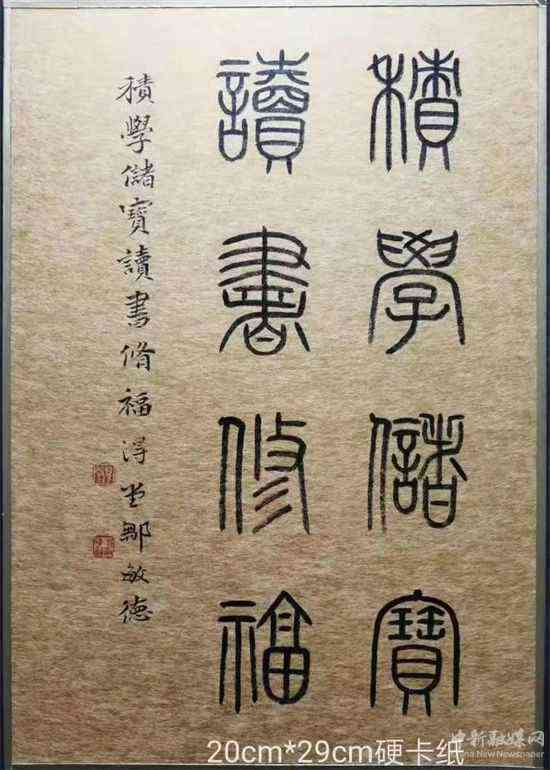 積學儲寶
讀書修福
積學儲寶讀書脩福得堂鄒敏德
20cm*29cm硬卡纸
中新融媒网
China.NewNewspaper